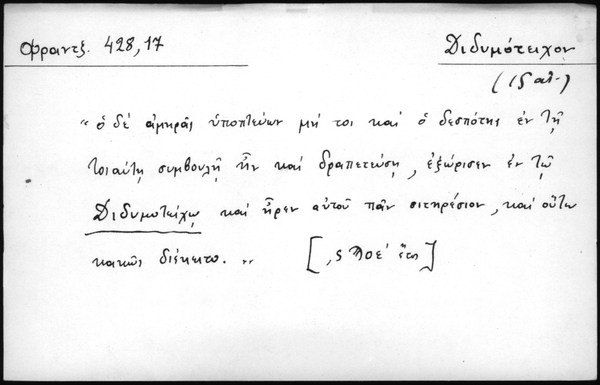 Φραντζ. 428,17
Διδυμότειχον
(ις αἰ.)
" ὁ δέ ἀμηρᾶς ὑποπτεύων μή τοι καί ὁ δεσπότης ἐν τῇ
τοιαύτῃ συμβουλῇ ἦν καί δραπετεύσῃ, ἐξώρισεν ἐν τῷ
Διδυμοτείχῳ καί ἦρεν αὐτοῦ πᾶν σιτηρέσιον, καί οὕτω
κακῶς διέκειτο. "
[,ς Ϡοε' ἔτος]